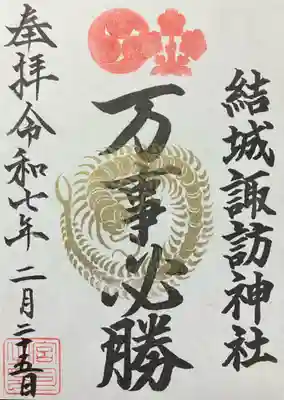 結城諏訪神社
万事必勝
奉拝 令和七年 二月二十五日